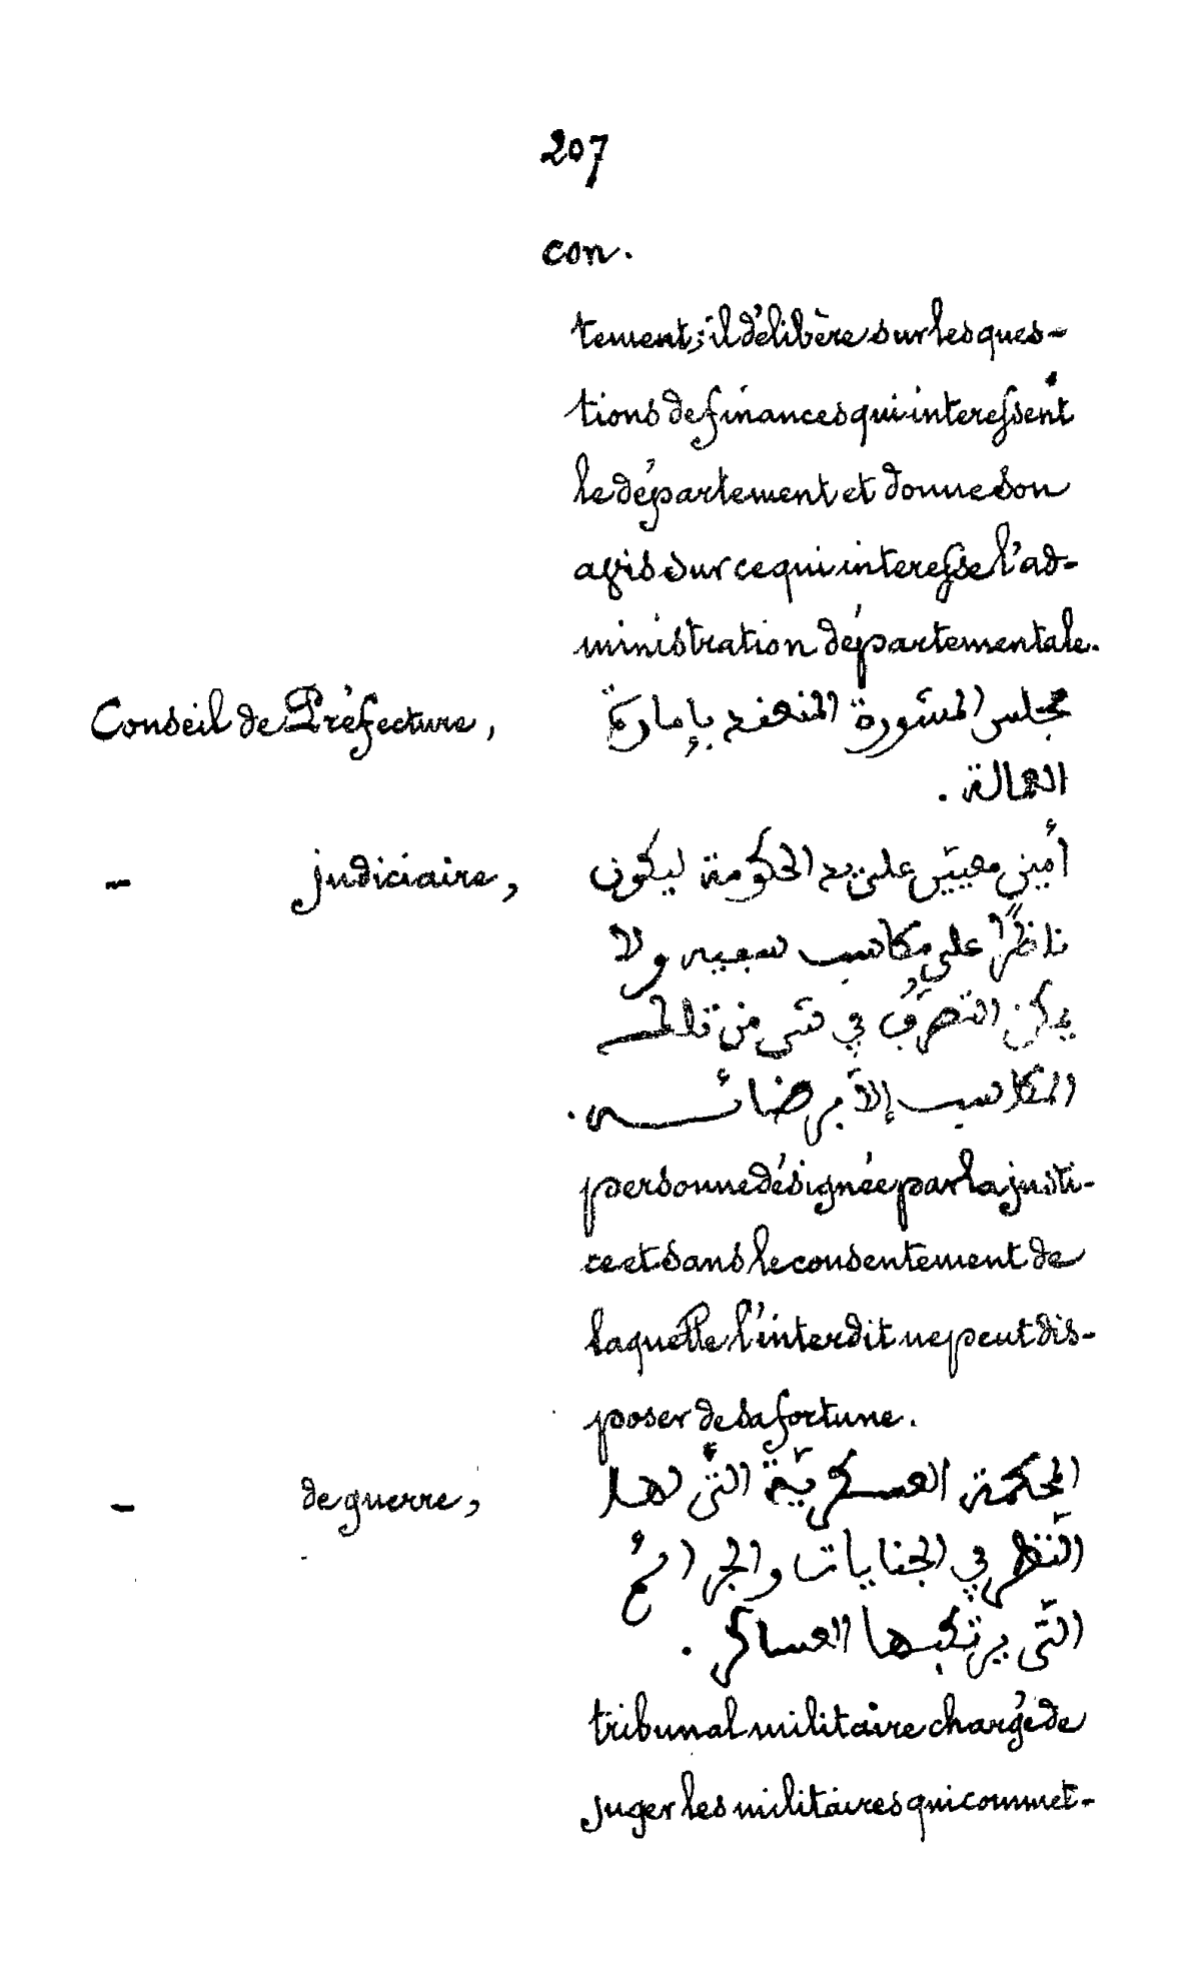 207
con.
tement; il délibère sur les ques-
tions de finances qui interessent
le département et donne son
avis sur ce qui interesse l'ad-
ministration départementale.
Conseil de Préfecture, مجلس المشورة المنعقد بإمارة
العمالة.
— judiciaire, أمين معيّن على يد الحكومة ليكون
ناظرًا على مكاسب سفيه ولا
يمكن التصرّف في شي من تلك
المكاسب إلاّ برضائه.
personne désignée par la justi-
ce et sans le consentement de
laquelle l'interdit ne peut dis-
poser de sa fortune.
— de guerre, المحكمة العسكريّة التّي لها
النّظر في الجنايات والجرائم
التّي يرتكبها العساكر.
tribunal militaire chargé de
juger les militaires qui commet-